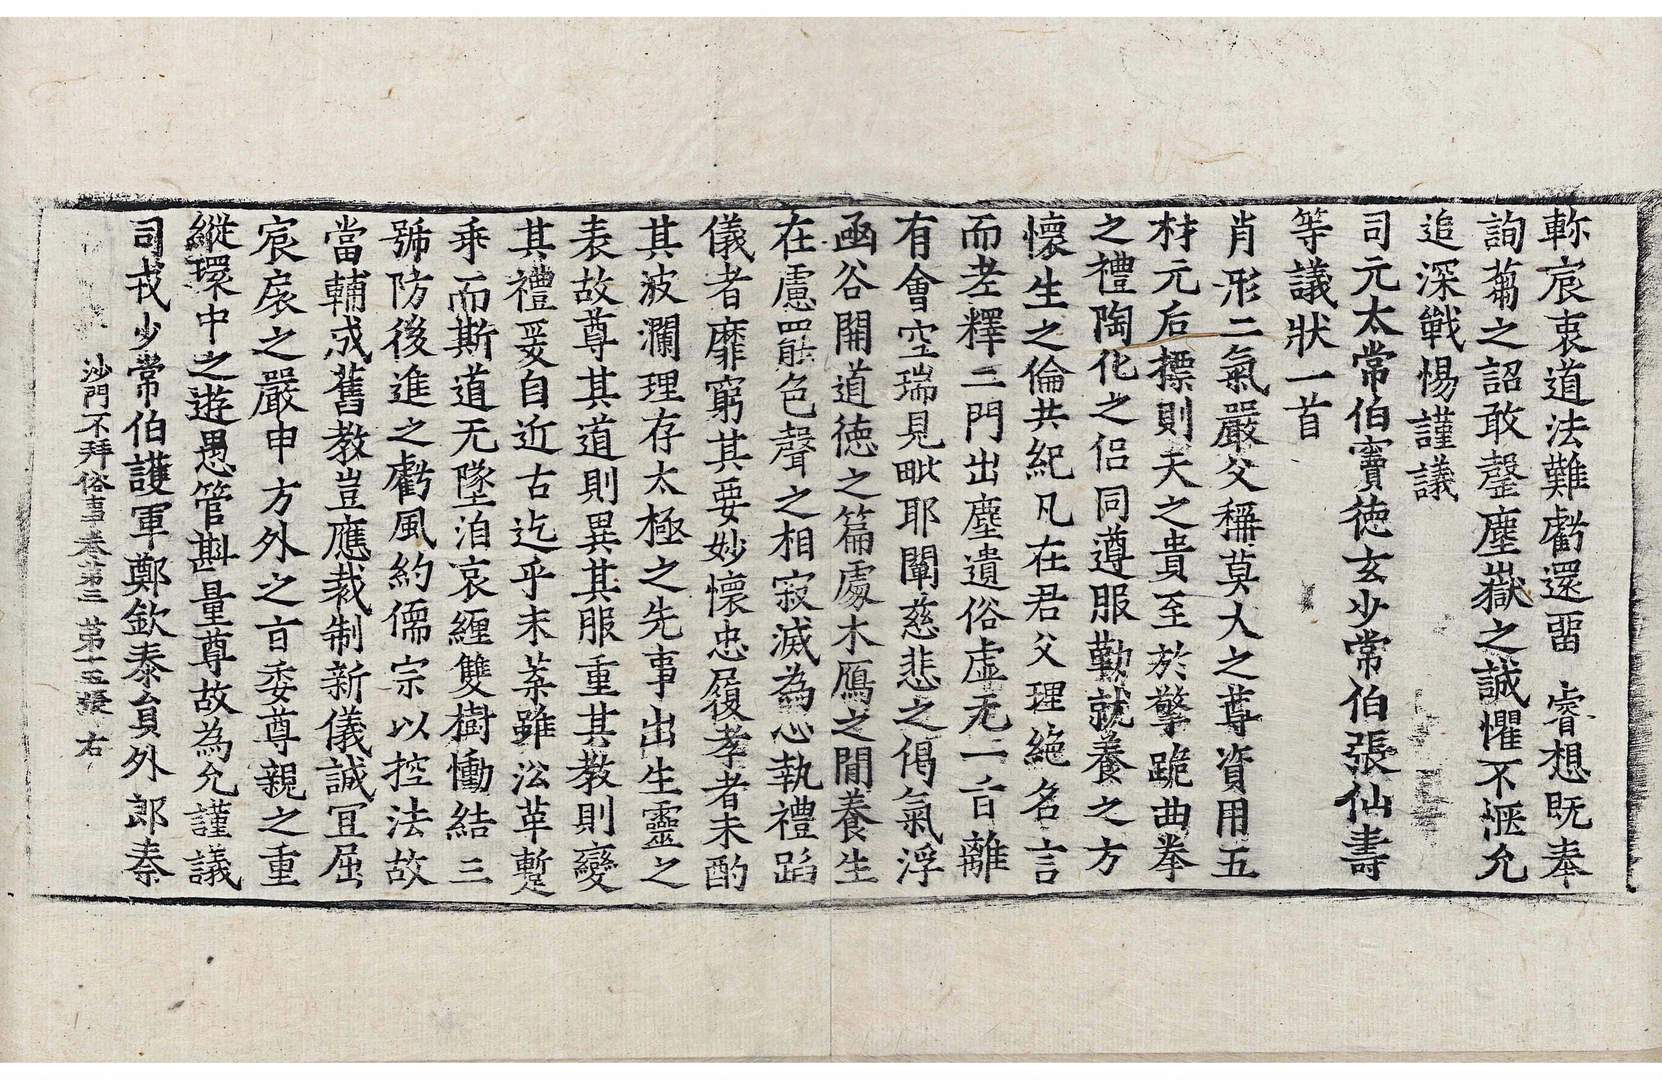 軫宸衷道法難虧還畱　睿想既奉
詢蒭之詔敢罄塵嶽之誠懼不愜允
追深戰惕謹議
司元太常伯竇德玄少常伯張仙壽
等議狀一首
肖形二氣嚴父稱莫大之尊資用五
材元后標則天之貴至於擎跪曲拳
之禮陶化之侶同遵服勤就養之方
懷生之倫共紀凡在君父理絕名言
而老釋二門出塵遺俗虛无一旨離
有會空瑞見毗耶闡慈悲之偈氣浮
函谷開道德之篇處木鴈之閒養生
在慮罷色聲之相寂滅為心執禮蹈
儀者靡窮其要妙懷忠履孝者未酌
其波瀾理存太極之先事出生靈之
表故尊其道則異其服重其教則變
其禮爰自近古迄乎末葉雖沿革蹔
乖而斯道无墜洎哀纏雙樹慟結三
號防後進之虧風約儒宗以控法故
當輔成舊教豈應裁制新儀誠冝屈
宸扆之嚴申方外之旨委尊親之重
縱環中之遊愚管斟量尊故為允謹議
司戎少常伯護軍鄭欽泰員外郎秦
沙門不拜俗事卷第三　第十五張　右